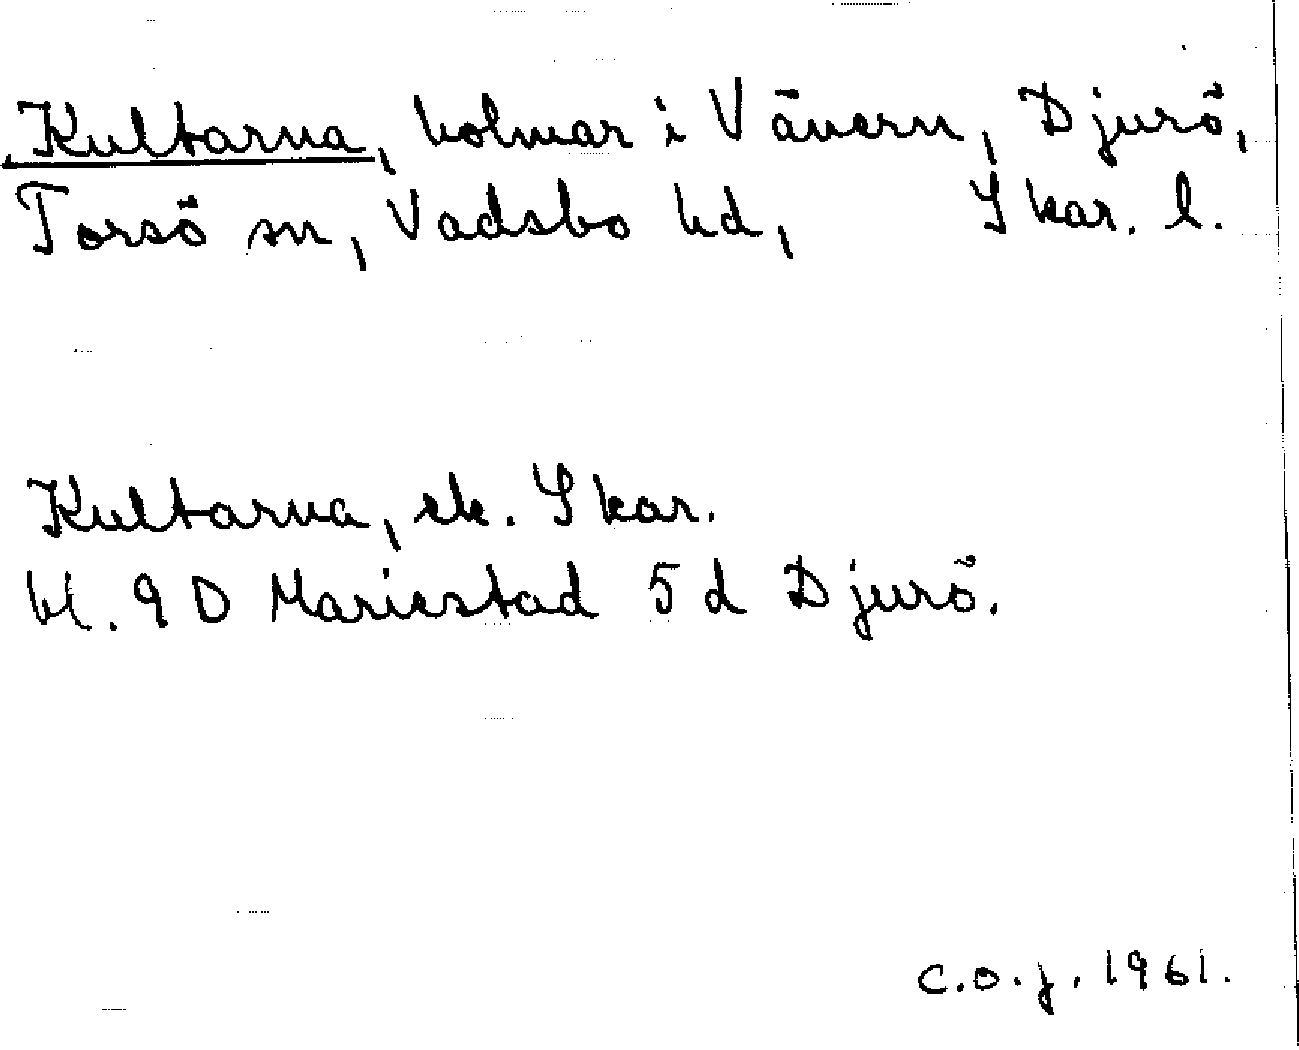 Kultarna, holmar i Vänern, Djurö,
Torsö sn, Vadsbo hd, Skar. l.
Kultarna, ek. Skar.
bl. 9 D Mariestad 5 d Djurö.
C.O.J. 1961.